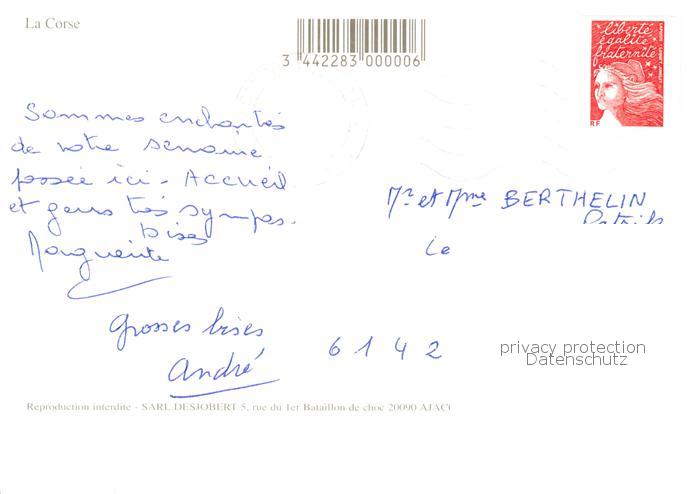 La Corse
3 442283 000006
liberté
égalité
fraternité
RF
Sommes enchantés
de notre semaine
passée ici - Accueil
et gens très sympas.
Bises
Marguerite
Mr et Mme BERTHELIN
Le
Grosses bises
André
6 1 4 2
privacy protection
Datenschutz
Reproduction interdite - SARL DESJOBERT 5, rue du 1er Bataillon de choc 20090 AJAC